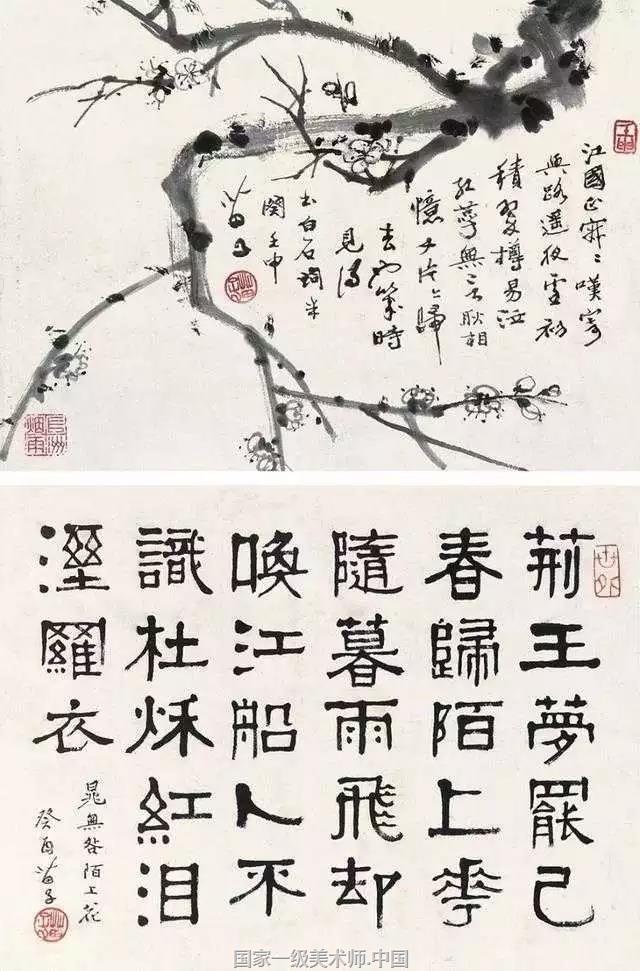 江國正寂〻嘆寄
與路遥夜雪初
積翠樽易泣
紅萼無言耿相
憶片〻歸
去也幾時
見得
書白石詞半
闋壬申
苗子
荆王夢罷已
春歸陌上花
隨暮雨飛却
喚江船人不
識杜秌紅泪
溼羅衣
晁無咎陌上花
癸酉苗子
国家一级美术师.中国